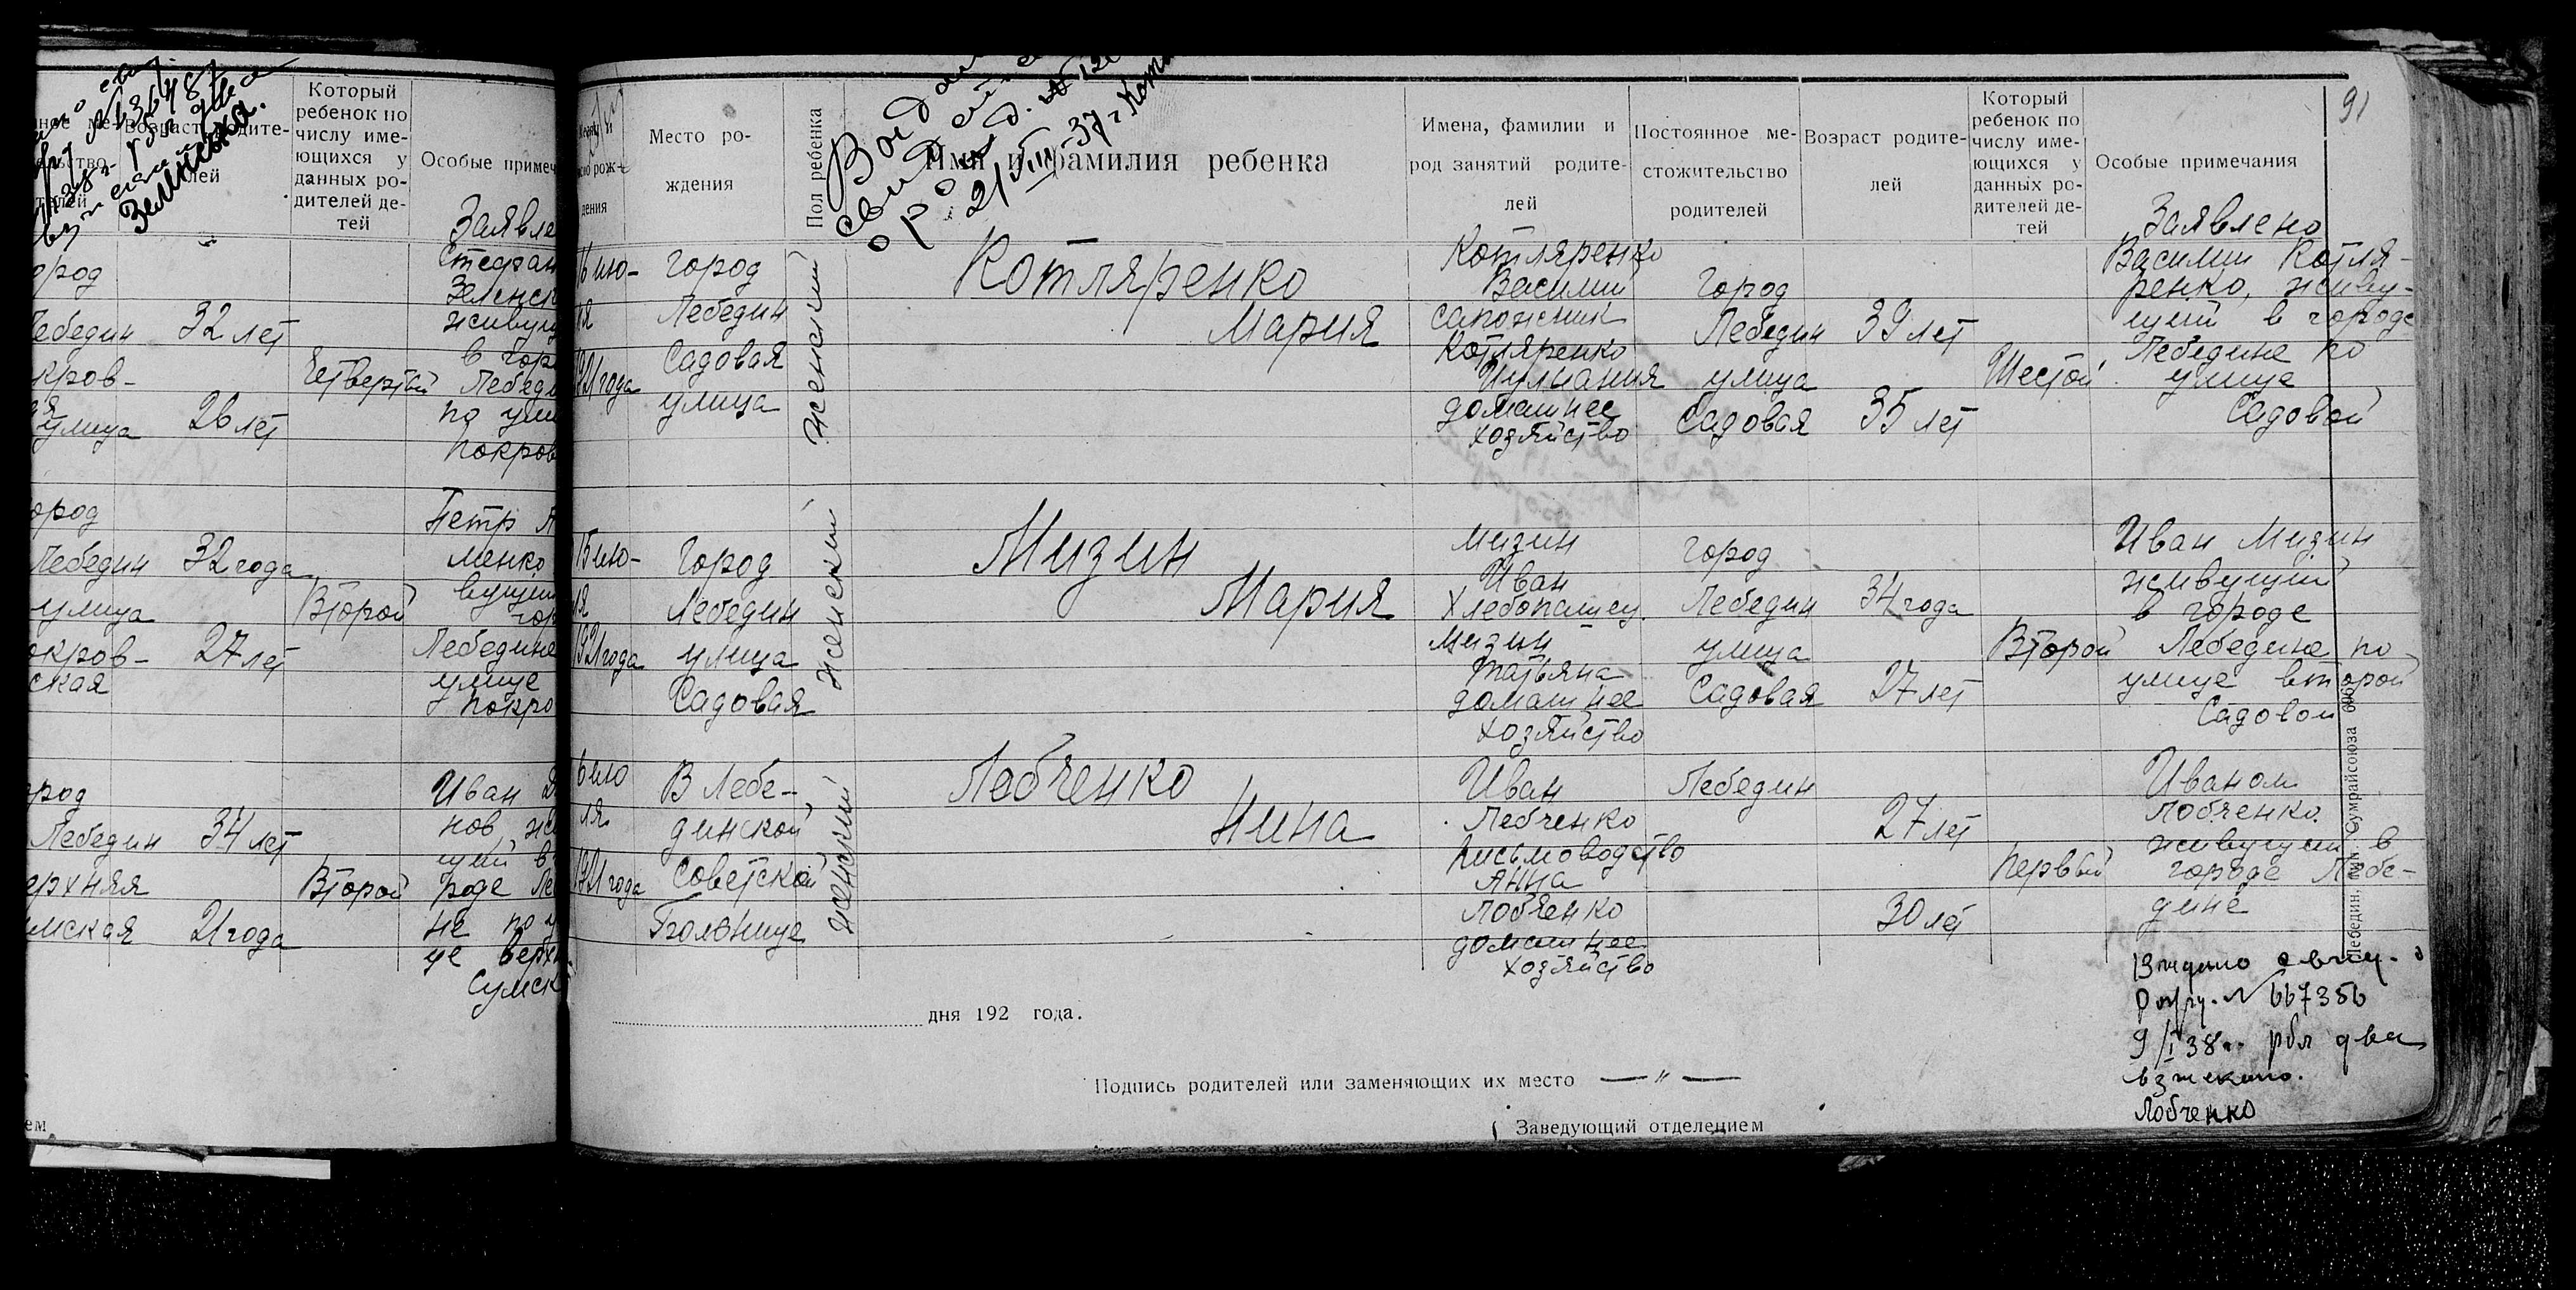 Возраст родите-
лей
Который
ребенок по
числу име-
ющихся у
данных ро-
дителей де-
тей
Особые примеч
Зеленська.
Заявле
город
Лебедин
32 лет
26 лет
улица
Четвертый
Стефан
Зеленск
живущ
в гор
Лебеди
по ули
Покров
город
Лебедин
улица
покров-
ская
32 года
27 лет
Второй
Петр
менко
вущи
гор
Лебедине
улице
Покро
город
Лебедин
верхняя
34 лет
21 года
Второй
Иван
нов, жи
щий в
роде Ле
не по у
це верх
Сумск
Место ро-
ждения
Пол ребенка
Имя и фамилия ребенка
Имена, фамилии и
род занятий родите-
лей
Постоянное ме-
стожительство
родителей
Возраст родите-
лей
Который
ребенок по
числу име-
ющихся у
данных ро-
дителей де-
тей
Особые примечания
91
16 ию-
ля
1921 года
город
Лебедин
Садовая
улица
Женский
Котляренко
Мария
Котляренко
Василий
сапожник
Котляренко
Иулиания
домашнее
хозяйство
город
Лебедин
улица
Садовая
39 лет
35 лет
Шестой
Заявлено
Василий Котля-
ренко, живу-
щий в городе
Лебедине по
улице
Садовой
15 ию-
ля
1921 года
город
Лебедин
улица
Садовая
Женский
Мизин
Мария
Мизин
Иван
Хлебопашец
Мизин
Татьяна
домашнее
хозяйство
город
Лебедин
улица
Садовая
34 года
27 лет
Второй
Иван Мизин
живущий
в городе
Лебедине по
улице второй
Садовой
6 ию
ля
1921 года
В Лебе-
динской
Советской
Больнице
Женский
Лобченко
Нина
Иван
Лобченко
письмоводство
Анна
Лобченко
домашнее
хозяйство
Лебедин
27 лет
30 лет
Первый
Иваном
Лобченко
живущим в
городе Лебе-
дине
№ 667356
9/I 38 рбл два
Лобченко
дня 192 года.
Подпись родителей или заменяющих их место — " —
Заведующий отделением